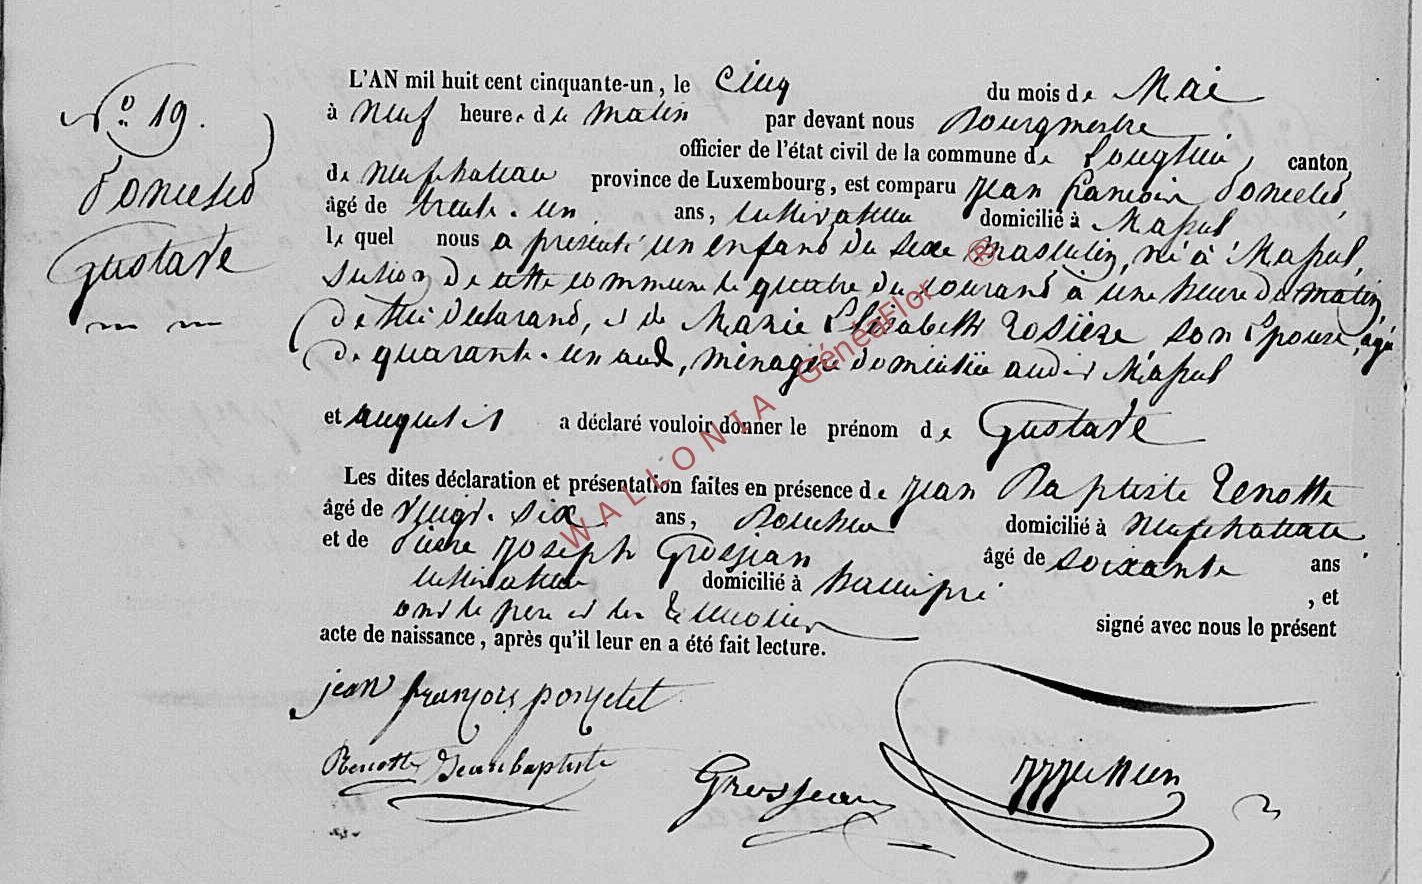 N° 19.
Poncelet
Gustave
L'AN mil huit cent cinquante-un, le Cinq du mois de Mai
à neuf heures du matin par devant nous Bourgmestre
officier de l'état civil de la commune de Longlier, canton
de neufchateau province de Luxembourg, est comparu Jean françois Poncelet,
âgé de trente-un ans, cultivateur domicilié à Massul
le quel nous a présenté un enfant du sexe masculin, né à Massul,
section de cette commune le quatre du courant à une heure du matin,
de lui déclarant, et de Marie Elisabeth rosière, son Epouse, agée
de quarante-un ans, ménagère domiciliée audit Massul
et auquel il a déclaré vouloir donner le prénom de Gustave
Les dites déclaration et présentation faites en présence de Jean Baptiste Renotte
âgé de vingt-six ans, domicilié à neufchateau
et de Pierre Joseph Grosjean âgé de soixante ans
cultivateur domicilié à hamipré, et
ont le père et les témoins signé avec nous le présent
acte de naissance, après qu'il leur en a été fait lecture.
jean françois poncelet
Renotte Jean baptiste
Grosjean
WALLONIA GénéaFlor ®